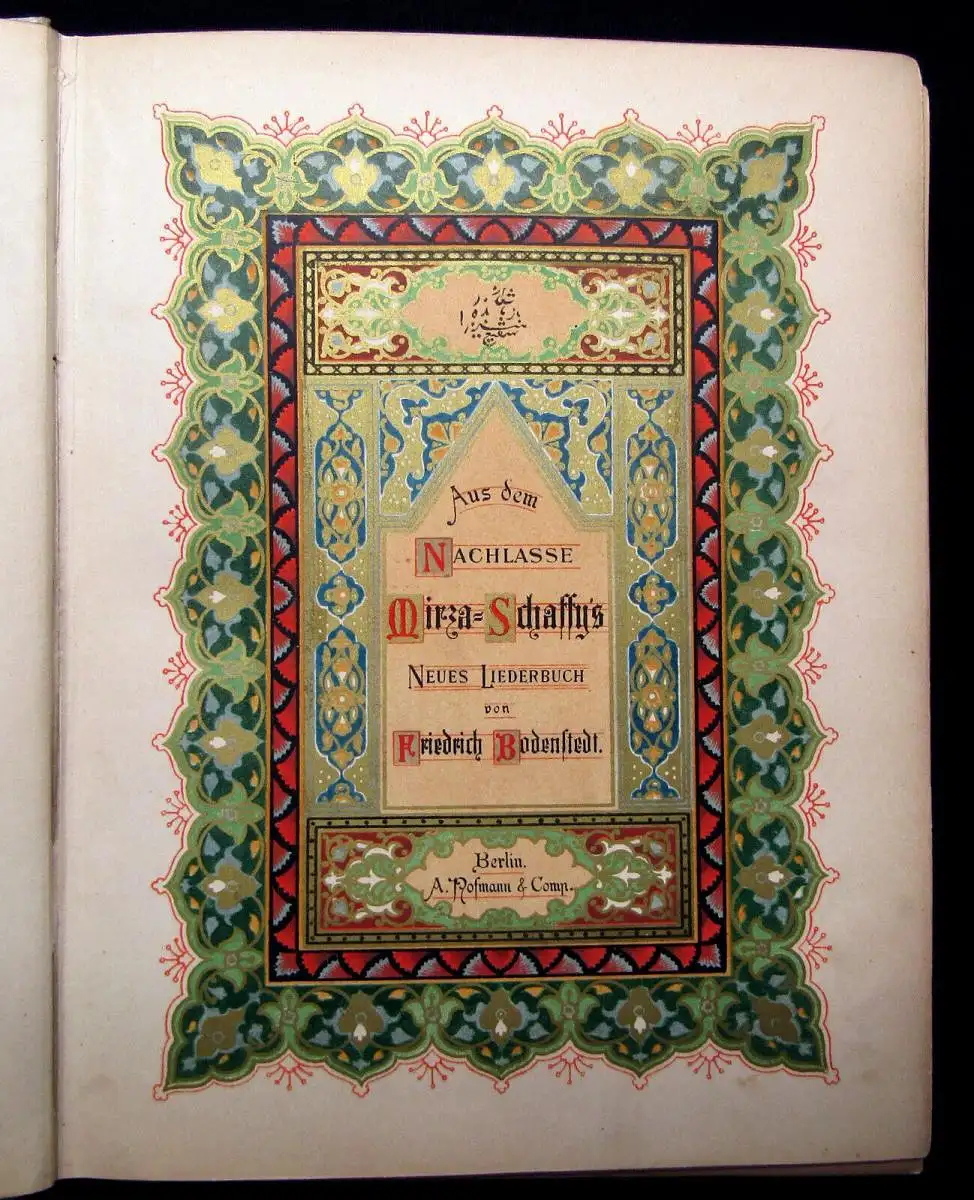 Aus dem
NACHLASSE
Mirza=Schaffy's
NEUES LIEDERBUCH
von
Friedrich Bodenstedt.
Berlin.
A. Hofmann & Comp.